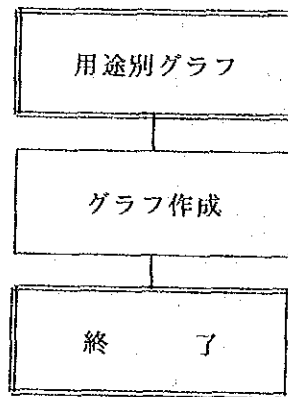 用途別グラフ
グラフ作成
終 了